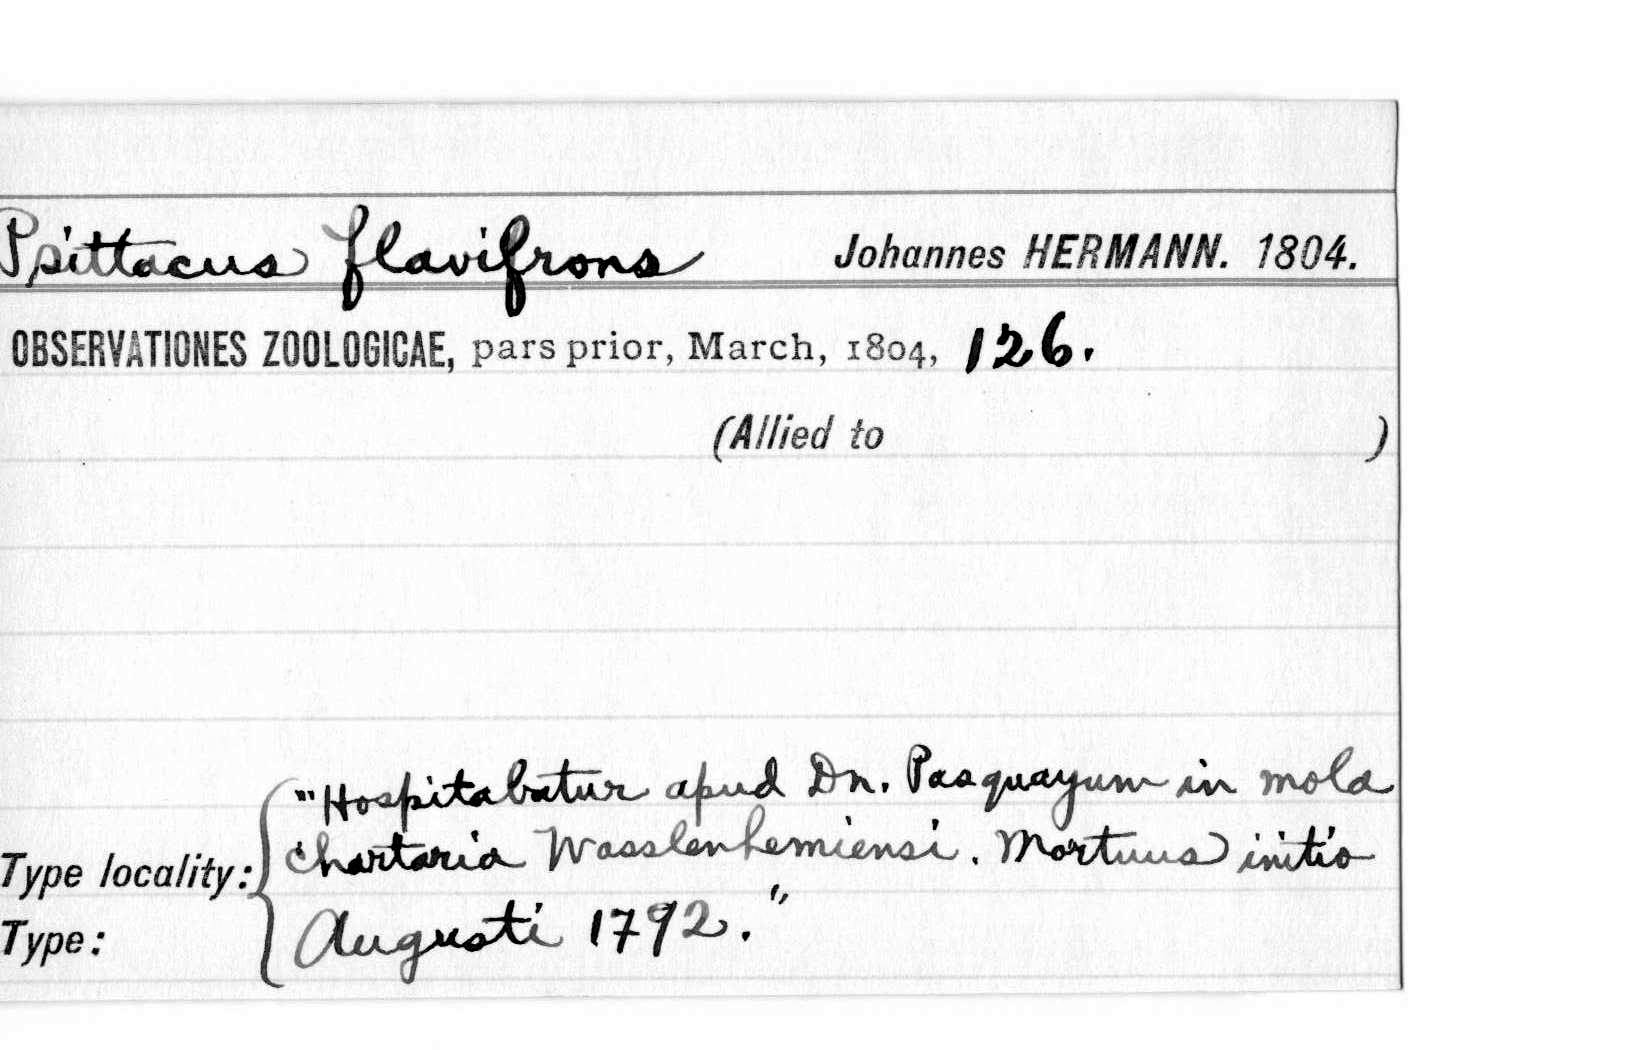 Psittacus flavifrons Johannes HERMANN. 1804.
OBSERVATIONES ZOOLOGICAE, pars prior, March, 1804, 126.
(Allied to )
"Hospitabatur apud Dn. Pasquayum in mola
Type locality: chartaria Wasslenhemiensi. Mortuus initio
Type: Augusti 1792."